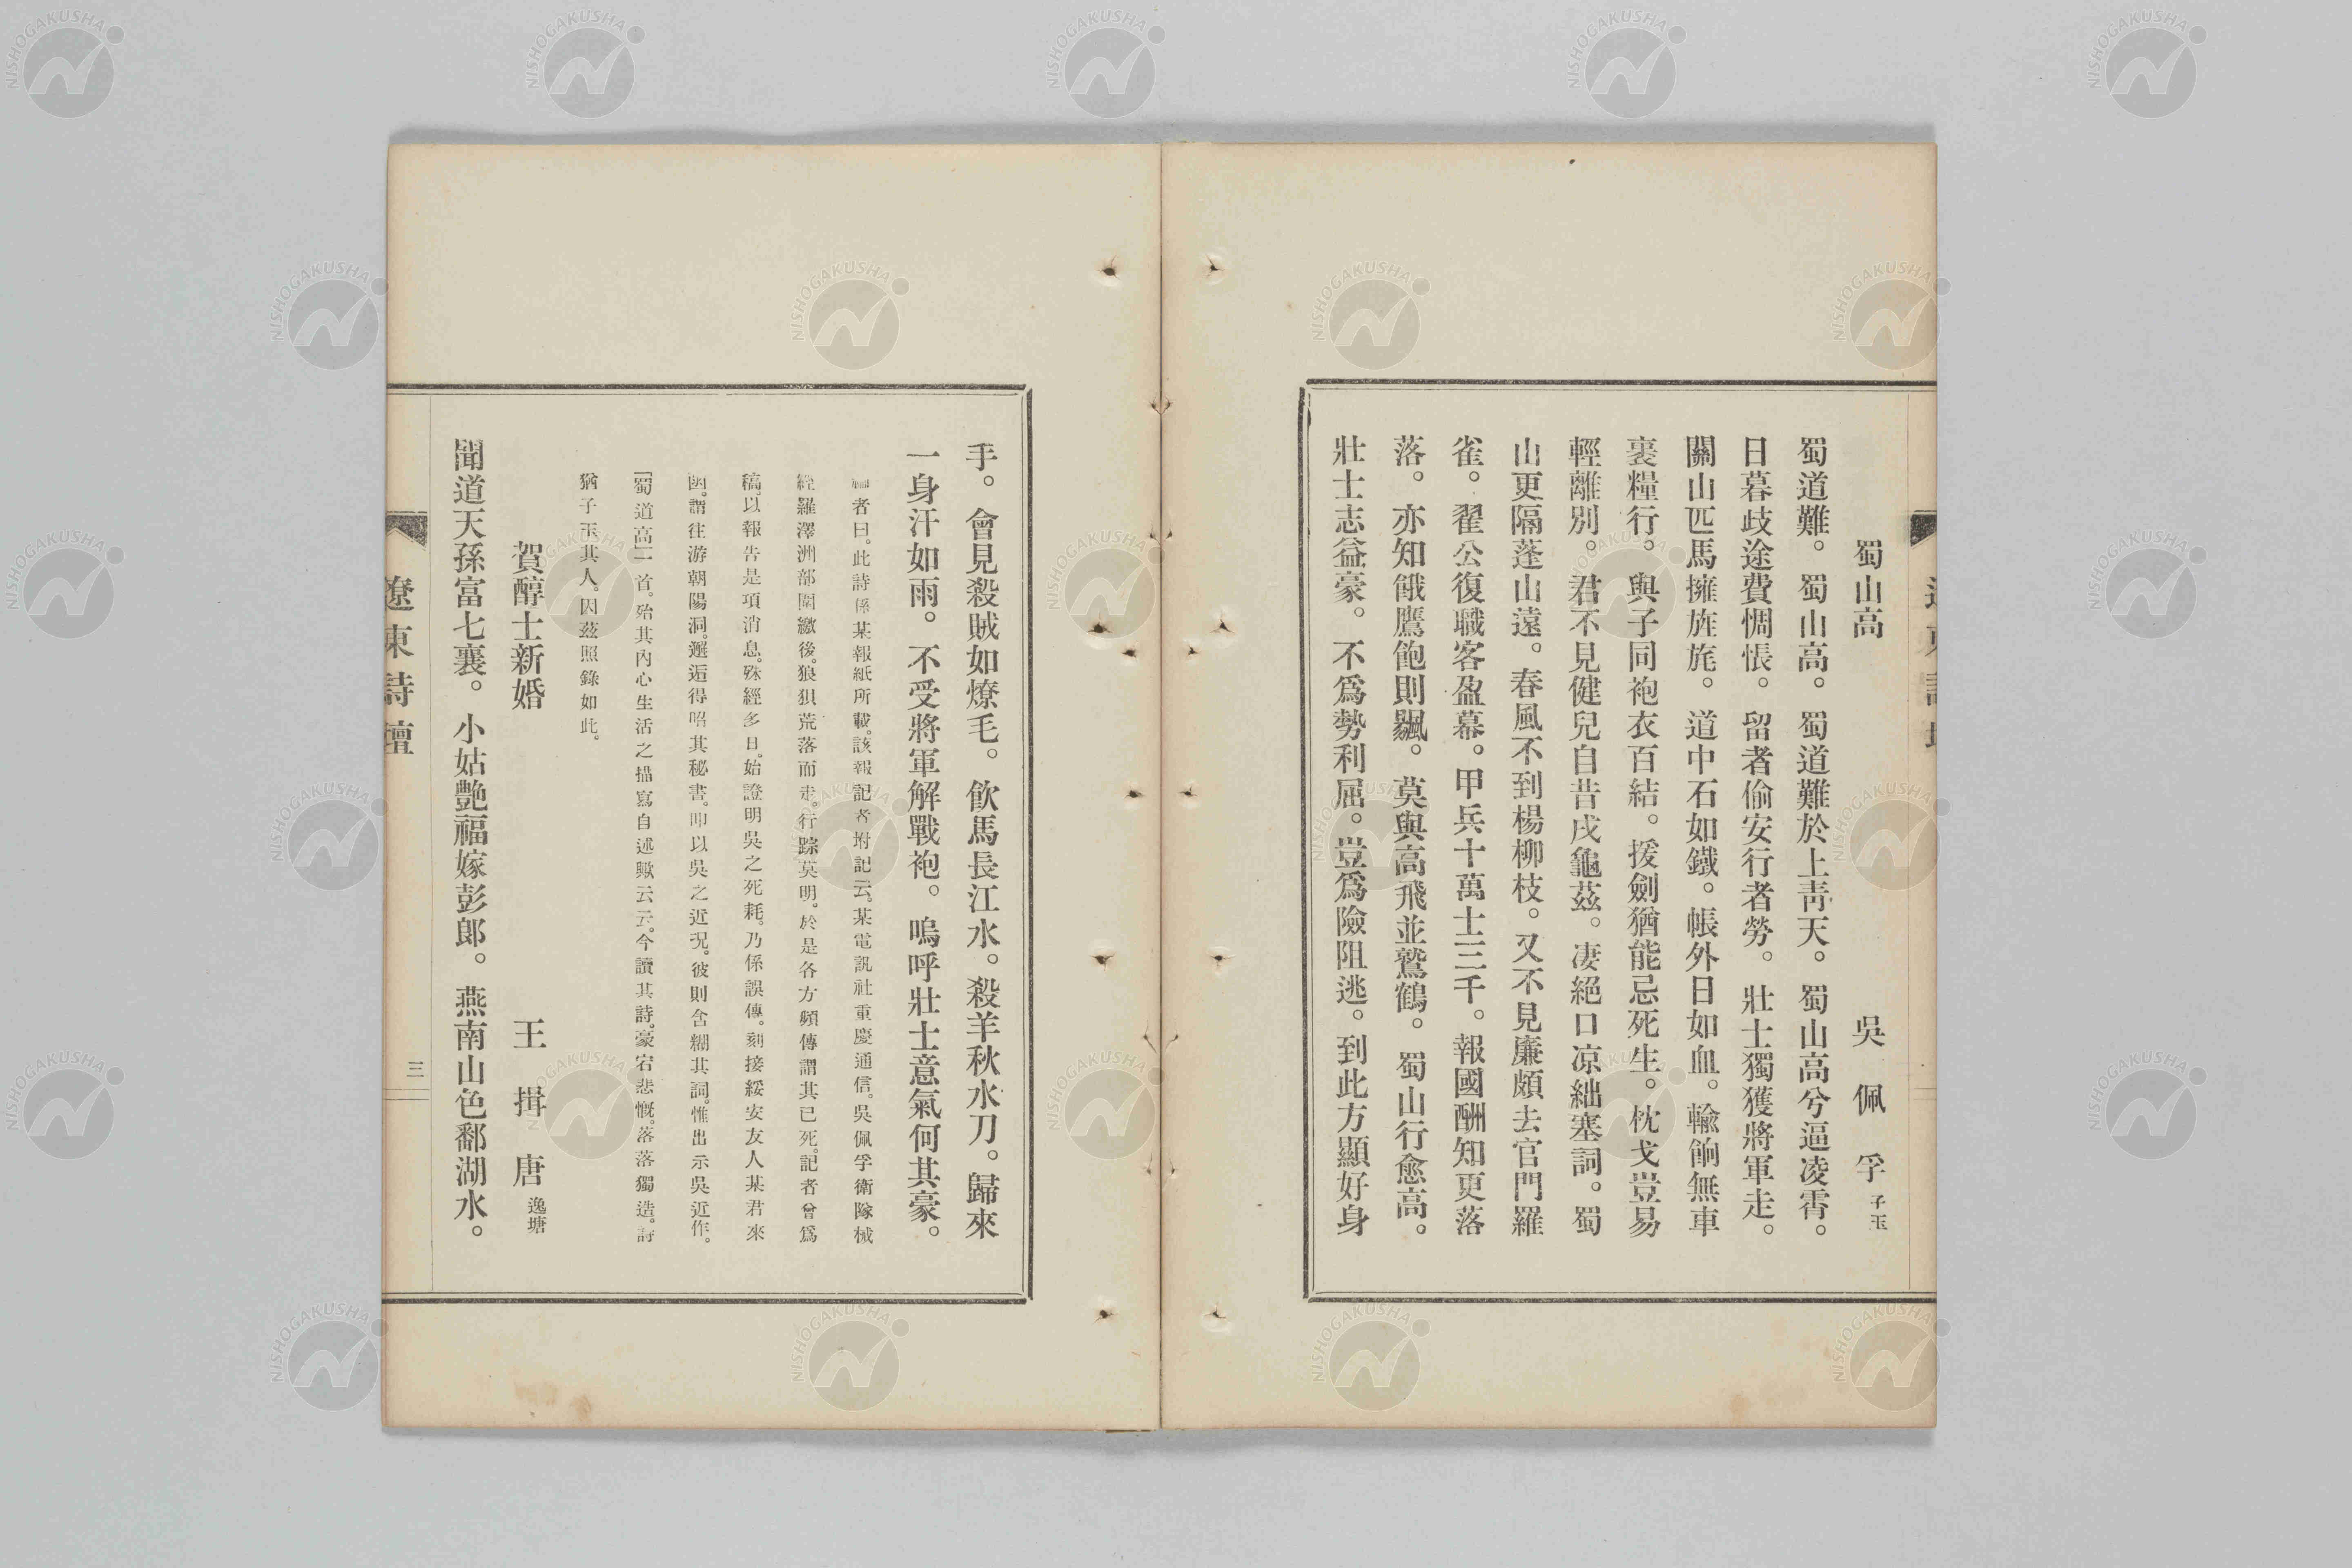 蜀山高　吳佩孚子玉
蜀道難。蜀山高。蜀道難於上靑天。蜀山高兮逼凌霄。
日暮歧途費惆悵。留者偷安行者勞。壯士獨獲將軍走。
關山匹馬擁旌旄。道中石如鐵。帳外日如血。輸餉無車
裹糧行。與子同袍衣百結。援劍猶能忌死生。枕戈豈易
輕離別。君不見健兒自昔戌龜茲。凄絕口凉絀塞詞。蜀
山更隔蓬山遠。春風不到楊柳枝。又不見廉頗去官門羅
雀。翟公復職客盈幕。甲兵十萬士三千。報國酬知更落
落。亦知餓鷹飽則颺。莫與高飛並鷲鶴。蜀山行愈高。
壯士志益豪。不爲勢利屈。豈爲險阻逃。到此方顯好身
手。會見殺賊如燎毛。飮馬長江水。殺羊秋水刀。歸來
一身汗如雨。不受將軍解戰袍。嗚呼壯士意氣何其豪。
者曰。此詩係某報紙所載。該報記者附記云。某電訊社重慶通信。吳佩孚衛隊械
經羅澤洲部圍繳後。狼狽荒落而走。行踪莫明。於是各方頻傳謂其已死。記者曾爲
稿。以報告是項消息。殊經多日。始證明吳之死耗。乃係誤傳。刻接綏安友人某君來
函。謂往游朝陽洞。邂逅得晤其秘書。叩以吳之近况。彼則含糊其詞。惟出示吳近作。
「蜀道高」一首。殆其內心生活之描寫自述歟云云。今讀其詩。豪宕悲慨。落落獨造。詩
猶子玉其人。因茲照錄如此。
賀醇士新婚　王揖唐逸塘
聞道天孫富七襄。小姑艶福嫁彭郎。燕南山色鄱湖水。
遼東詩壇
三
NISHOGAKUSHA